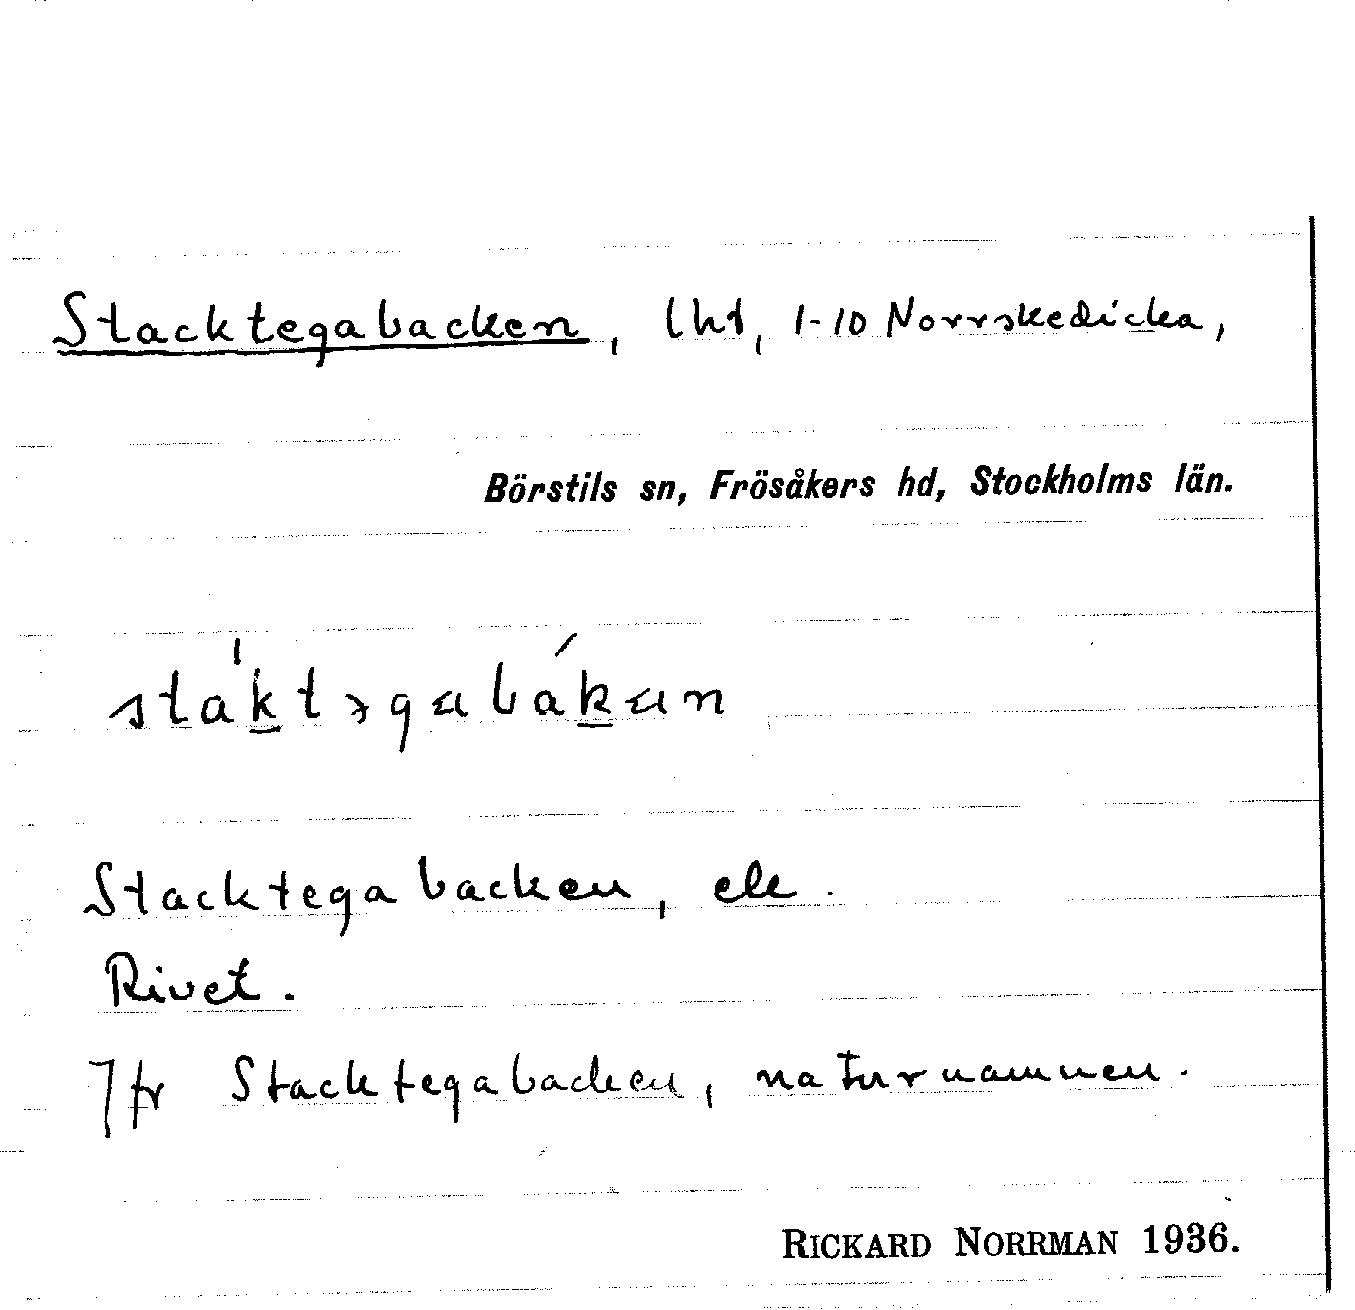 Stacktegabacken, lht, 1-10 Norrskedicka,
Börstils sn, Frösåkers hd, Stockholms län.
Stacktegabacken, ell.
Rivet.
Jfr Stacktegabacken, naturnamnen.
RICKARD NORRMAN 1936.